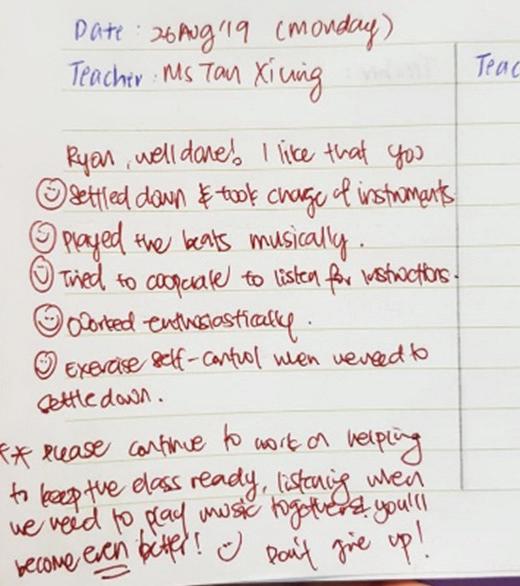 Date: 26 Aug '19 (Monday)
Teacher: Ms Tan Xiling
Teac
Ryan, well done! I like that you
settled down & took charge of instruments
Played the beats musically.
Tried to cooperate to listen for instructions.
Worked enthusiastically.
Exercise self-control when we need to
settle down.
** Please continue to work on helping
to keep the class ready, listening when
we need to play music together & you'll
become even better! Don't give up!